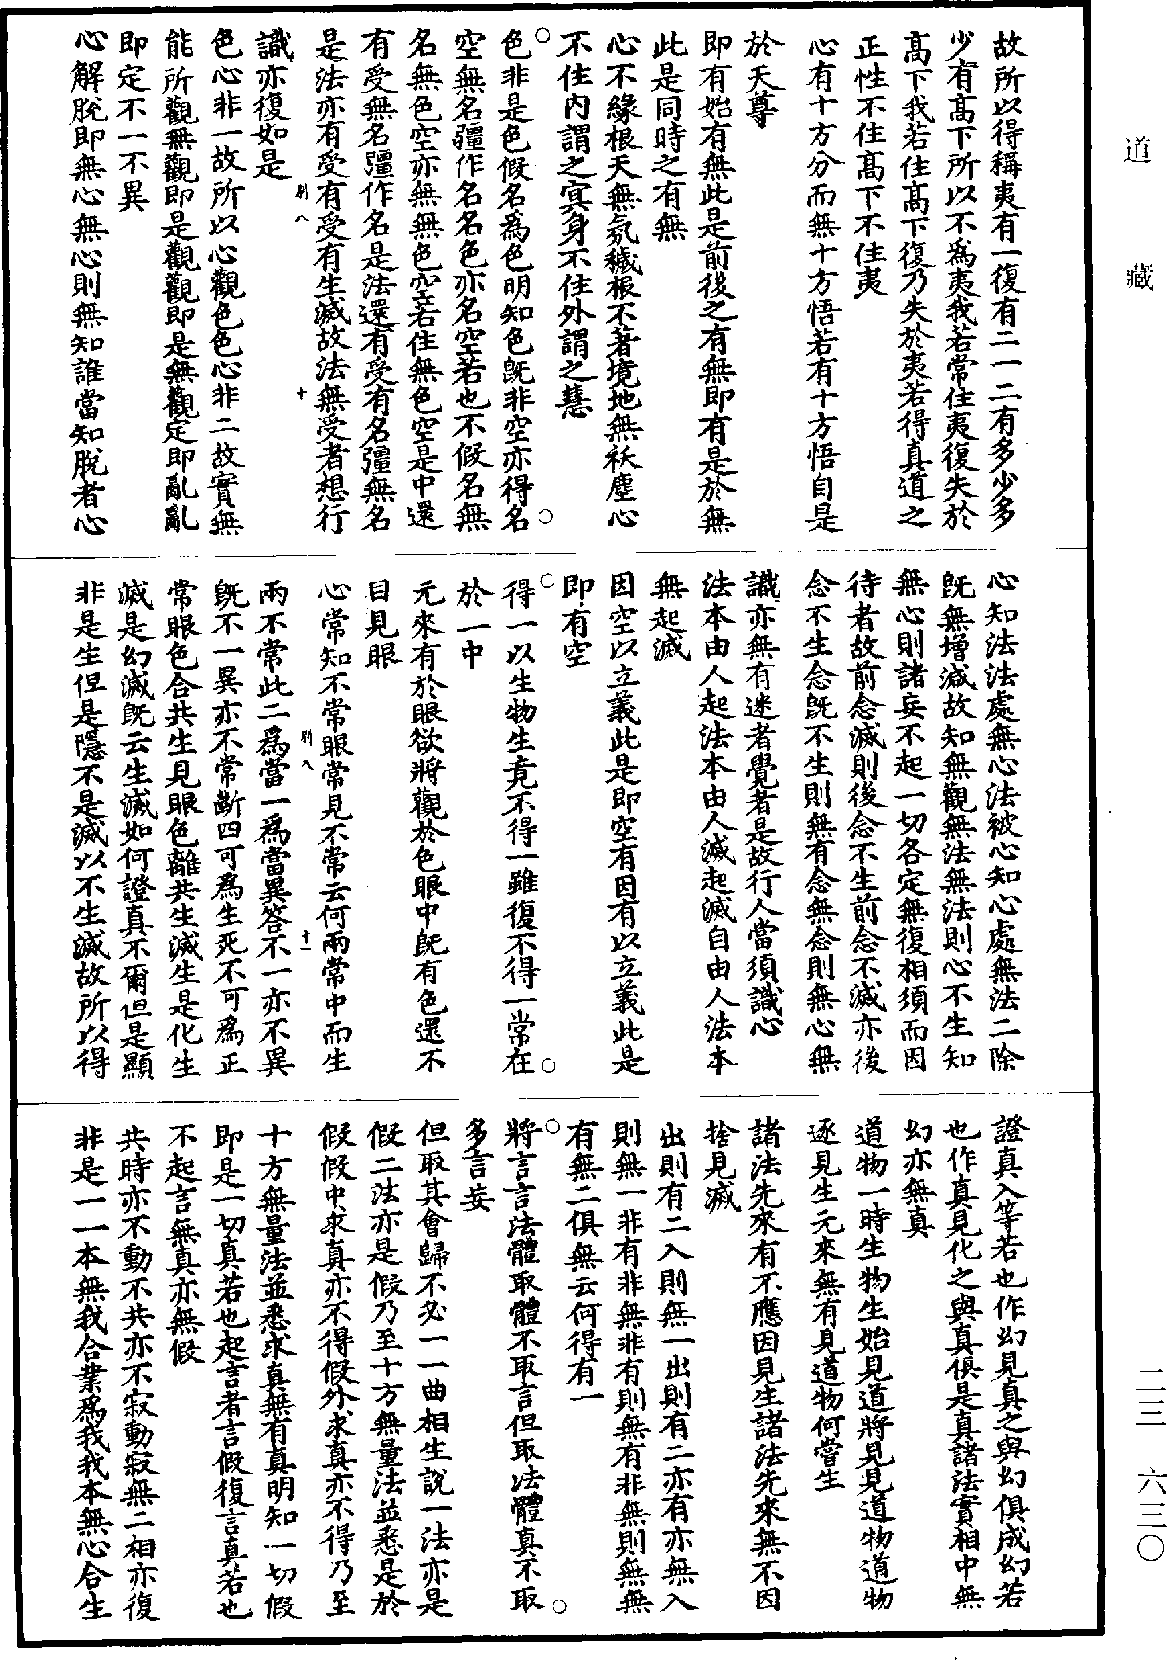 道藏
故所以得稱夷有一復有二一二有多少多
少有高下所以不為夷我若常住夷復失於
高下我若住高下復乃失於夷若得真道之
正性不住高下不住夷
心有十方分而無十方悟若有十方悟自是
於天尊
即有始有無此是前後之有無即有是於無
此是同時之有無
心不緣根天無氛穢根不著境地無祅塵心
不住內謂之寞身不住外謂之慧
色非是色假名為色明知色既非空亦得名
空無名彊作名名色亦名空若也不假名無
名無色空亦無無色空若住無色空是中還
有受無名彊作名是法還有受有名彊無名
是法亦有受有受有生滅故法無受者想行
別八
十
識亦復如是
色心非一故所以心觀色色心非二故實無
能所觀無觀即是觀觀即是無觀定即亂亂
即定不一不異
心解脫即無心無心則無知誰當知脫者心
心知法法處無心法被心知心處無法二除
既無增減故知無觀無法無法則心不生知
無心則諸妄不起一切各定無復相須而因
待者故前念滅則後念不生前念不滅亦後
念不生念既不生則無有念無念則無心無
識亦無有迷者覺者是故行人當須識心
法本由人起法本由人滅起滅自由人法本
無起滅
因空以立義此是即空有因有以立義此是
即有空
得一以生物生竟不得一雖復不得一常在
於一中
元來有於眼欲將觀於色眼中既有色還不
目見眼
心常知不常眼常見不常云何兩常中而生
別八
十一
兩不常此二為當一為當異答不一亦不異
既不一異亦不常斷四可為生死不可為正
常眼色合共生見眼色離共生滅生是化生
滅是幻滅既云生滅如何證真不爾但是顯
非是生但是隱不是滅以不生滅故所以得
證真入等若也作幻見真之與幻俱成幻若
也作真見化之與真俱是真諸法實相中無
幻亦無真
道物一時生物生始見道將見見道物道物
逐見生元來無有見道物何嘗生
諸法先來有不應因見生諸法先來無不因
捨見滅
出則有二入則無一出則有二亦有亦無入
則無一非有非無非有則無有非無則無無
有無二俱無云何得有一
將言言法體取體不取言但取法體真不取
多言妄
但取其會歸不必一一曲相生說一法亦是
假二法亦是假乃至十方無量法並悉是於
假假中求真亦不得假外求真亦不得乃至
十方無量法並悉求真無有真明知一切假
即是一切真若也起言者言假復言真若也
不起言無真亦無假
共時亦不動不共亦不寂動寂無二相亦復
非是一一本無我合業為我我本無心合生
二三 六三〇